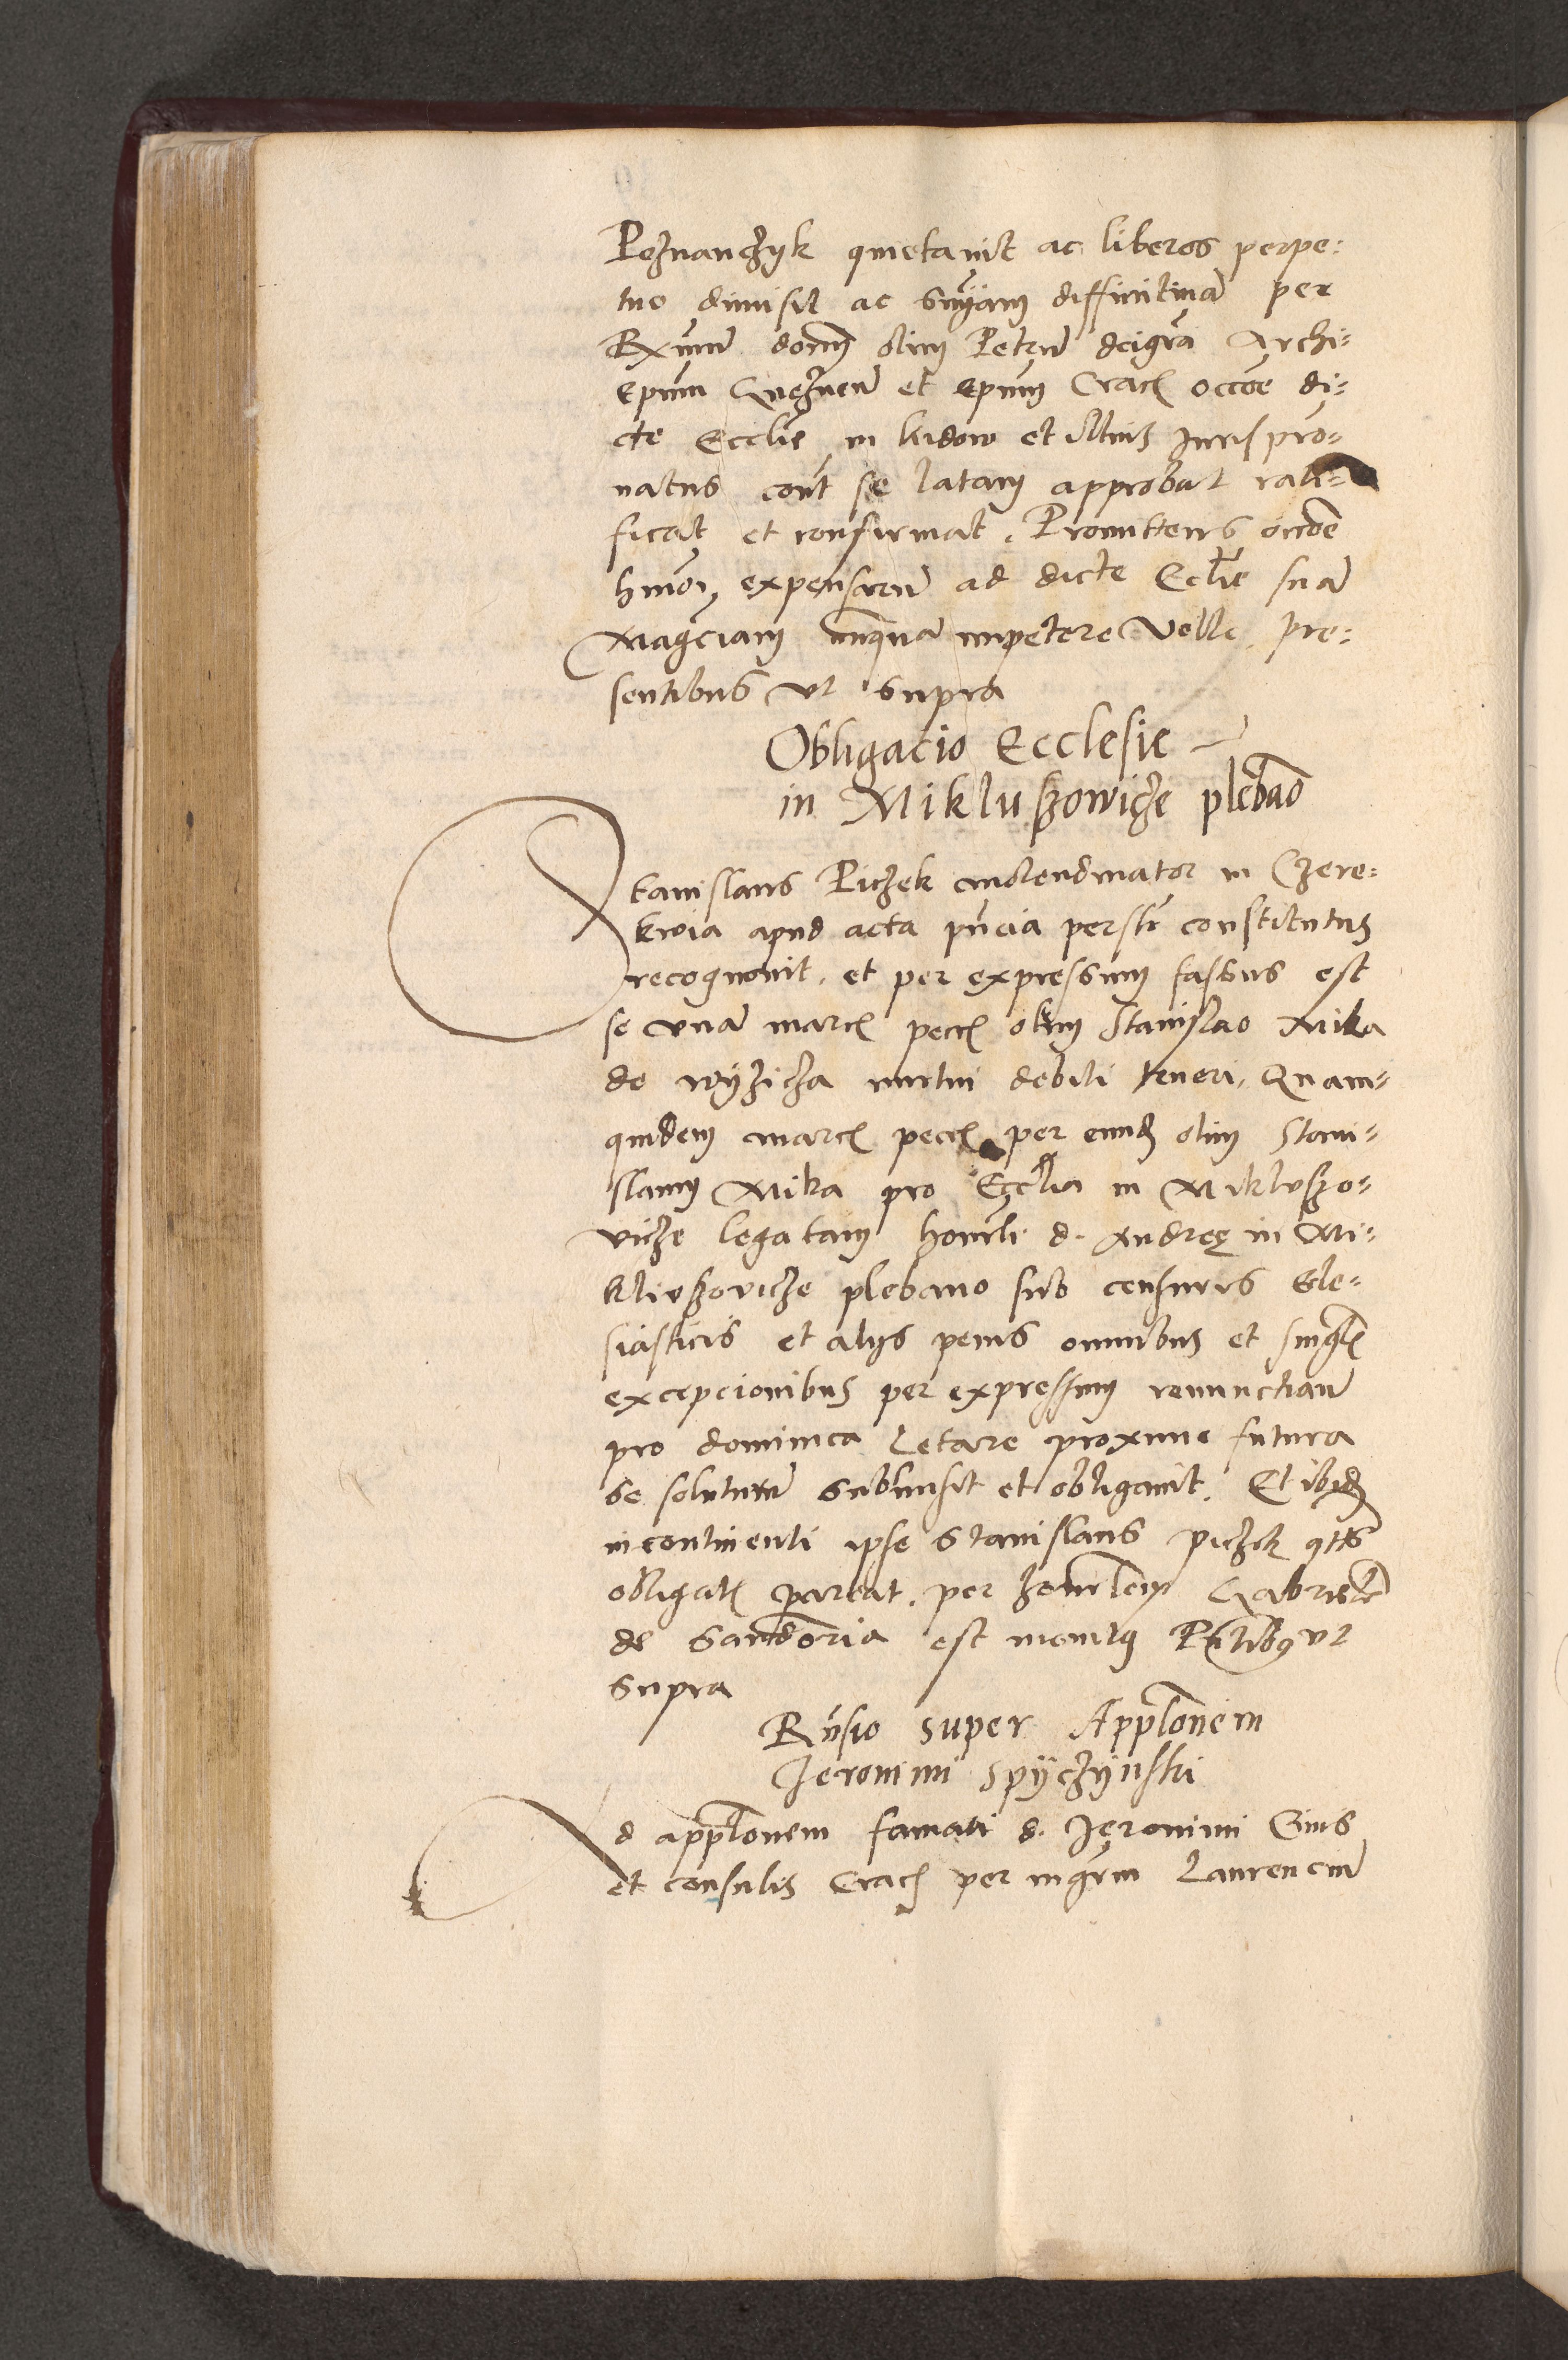 Poznanczyk quietavit ac liberos perpe:
tuo dimisit ac sniam diffinitivā per
Rxmum donm olim Petrum deigrā Archi:
epum Gneznen et epum Crac occōe di:
cte Ecclie in kidow et illius Jurispro:
natus cont se latam approbat rati:
ficat et confirmat. Promittens occōe
hmōi expensarū ad dicte Eclie suā
magciam nunquā impetere velle pre:
sentibus ut supra
Obligacio Ecclesie
in Mikluszowicze plebāo
Stanislaus Piczek molendinator in Czere:
kwia apud acta pñcia perslr constitutus
recognovit et per expressum fassus est
se unā marc pecc olim Stanislao Mika
de wyzicza mutui debiti teneri. Quam:
quidem marc pecc per eund olim Stani:
slaum Mika pro Ecclia in Mikluszo:
vicze legatam honrli d. Andreę in Mi:
kluszovicze plebano sub censuris Ecle:
siasticis et alys penis omnibus et singl
excepcionibus per expressum renunctian
pro dominica Letare proxime futura
se soluturū submisit et obligavit. Et ibid
incontinenti ipse Stanislaus piczek qtus
obligat pareat per honrlem Gabrielē
de Sandomria est monitus Pñtibus ut
supra
Rñsio super Appltonem
Jeronimi Spyczynski
Ad appltonem famati d. Jeronimi Civis
et consulis Crac per mgrm Laurenciū